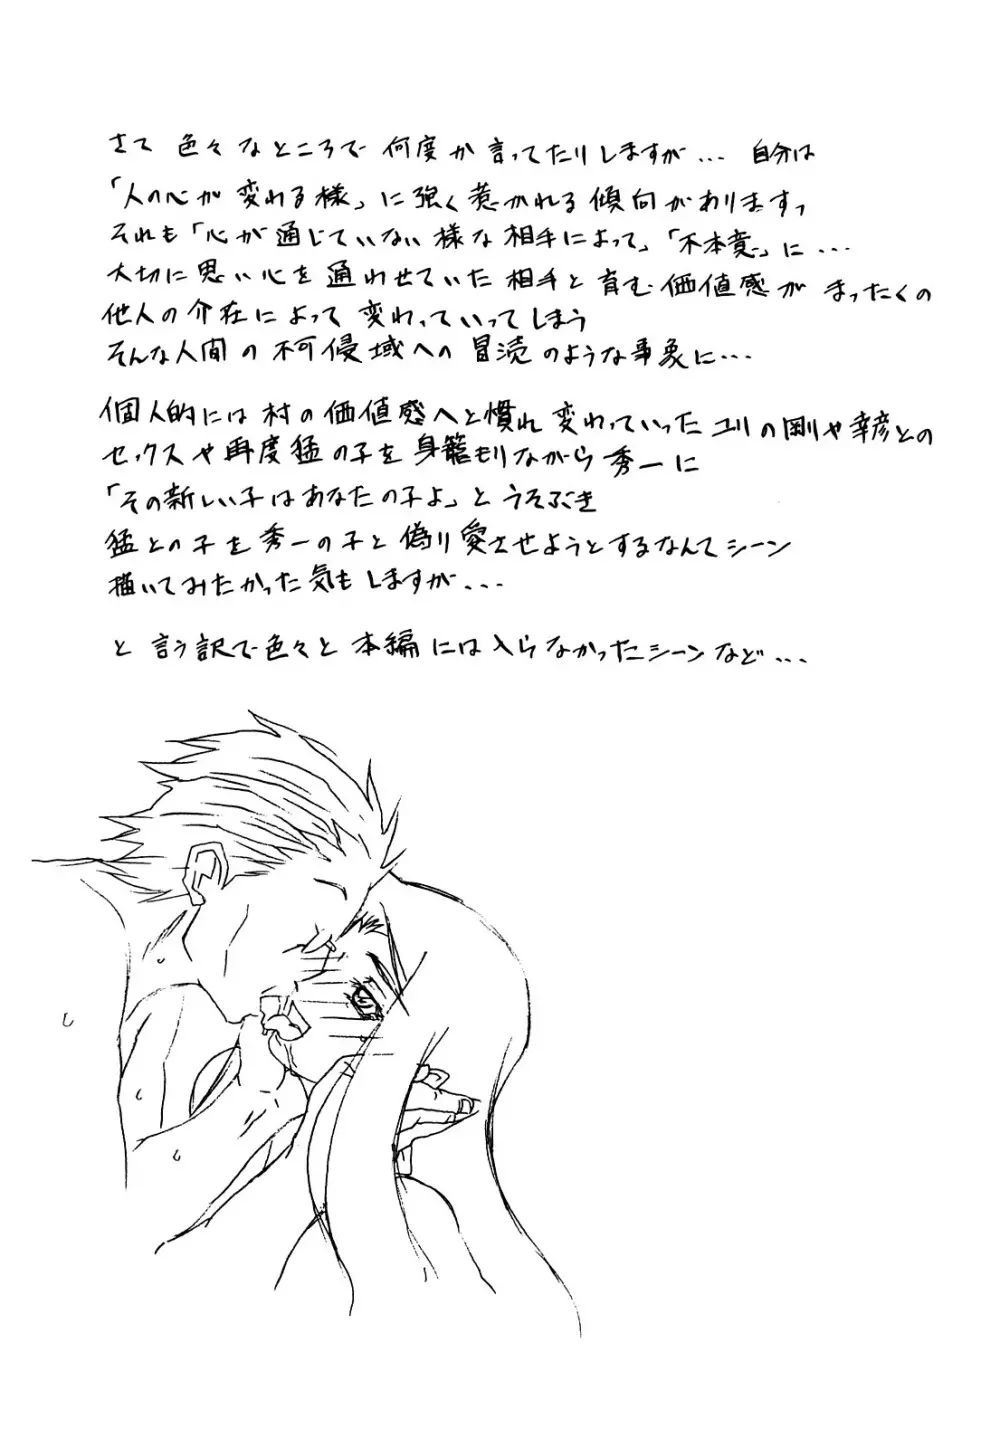 さて 色々なところで 何度か言ってたりしますが... 自分は
「人の心が 変わる様」に強く惹かれる傾向がありますっ
それも「心が通じていない様な相手によって」「不本意」に...
大切に思い心を通わせていた相手と育む価値感が まったくの
他人の介在によって変わっていってしまう
そんな人間の不可侵域への冒涜のような事象に...
個人的には村の価値感へと慣れ変わっていったユリの剛や幸彦との
セックスや再度猛の子を身籠もりながら秀一に
「その新しい子はあなたの子よ」とうそぶき
猛との子を秀一の子と偽り愛させようとするなんてシーン
描いてみたかった気もしますが...
と言う訳で色々と本編には入らなかったシーンなど...